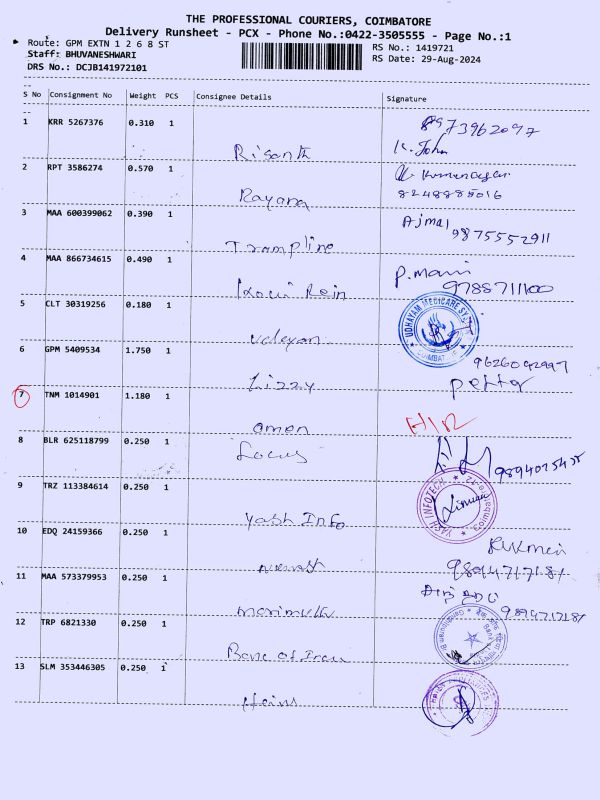 THE PROFESSIONAL COURIERS, COIMBATORE
Delivery Runsheet - PCX - Phone No.:0422-3505555 - Page No.:1
Route: GPM EXTN 1 2 6 8 ST
RS No.: 1419721
Staff: BHUVANESHWARI
RS Date: 29-Aug-2024
DRS No.: DCJB141972101
S No Consignment No Weight PCS Consignee Details Signature
1 KRR 5267376 0.310 1 8973962097
Risanth K. John
2 RPT 3586274 0.570 1
Rayana 8248885016
3 MAA 600399062 0.390 1 Ajmal
Trampline 9875552911
4 MAA 866734615 0.490 1 P. Mani
9788711100
5 CLT 30319256 0.180 1 UDHAYAM MEDICARE
COIMBATORE
6 GPM 5409534 1.750 1 9626092997
Lizzy
7 TNM 1014901 1.180 1
amen
8 BLR 625118799 0.250 1
Locus 9894025425
9 TRZ 113384614 0.250 1 YASH INFOTECH
Yash Info Coimbatore
10 EDQ 24159366 0.250 1 Rukmani
9894717181
11 MAA 573379953 0.250 1
Marimuthu 9894717181
12 TRP 6821330 0.250 1
13 SLM 353446305 0.250 1